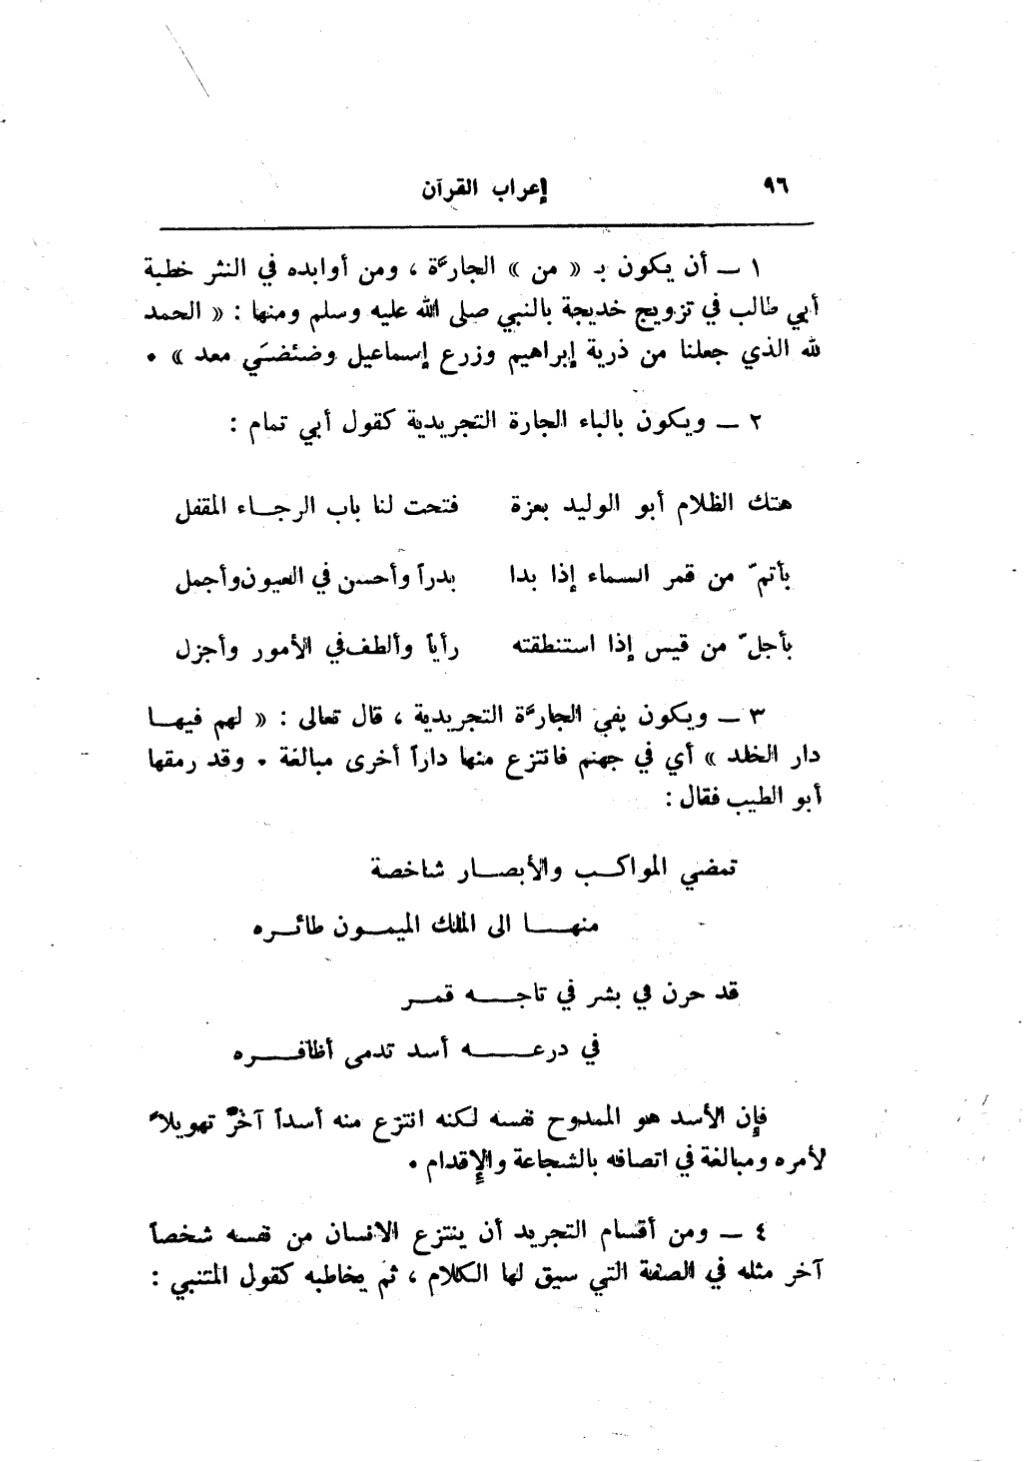 ٩٦
إعراب القرآن
١ ــ أن يكون بـ « من » الجارَّة ، ومن أوابده في النثر خطبة
أبي طالب في تزويج خديجة بالنبي صلى الله عليه وسلم ومنها : « الحمد
لله الذي جعلنا من ذرية إبراهيم وزرع إسماعيل وضئضئي معد » .
٢ ــ ويكون بالباء الجارة التجريدية كقول أبي تمام :
هتك الظلام أبو الوليد بعزة فتحت لنا باب الرجــاء المقفل
بأتمّ من قمر السماء إذا بدا بدراً وأحسن في العيون وأجمل
بأجلّ من قيس إذا استنطقته رأياً وألطف في الأمور وأجزل
٣ ــ ويكون بفي الجارَّة التجريدية ، قال تعالى : « لهم فيهــا
دار الخلد » أي في جهنم فانتزع منها داراً أخرى مبالغة . وقد رمقها
أبو الطيب فقال :
تمضي المواكــب والأبصــار شاخصة
منهــــا الى الملك الميمــون طائــره
قد حرن في بشر في تاجــــه قمــر
في درعــــــه أسد تدمى أظافــــره
فإن الأسد هو الممدوح نفسه لكنه انتزع منه أسداً آخرَ تهويلاً
لأمره ومبالغة في اتصافه بالشجاعة والإقدام .
٤ ــ ومن أقسام التجريد أن ينتزع الانسان من نفسه شخصاً
آخر مثله في الصفة التي سيق لها الكلام ، ثم يخاطبه كقول المتنبي :